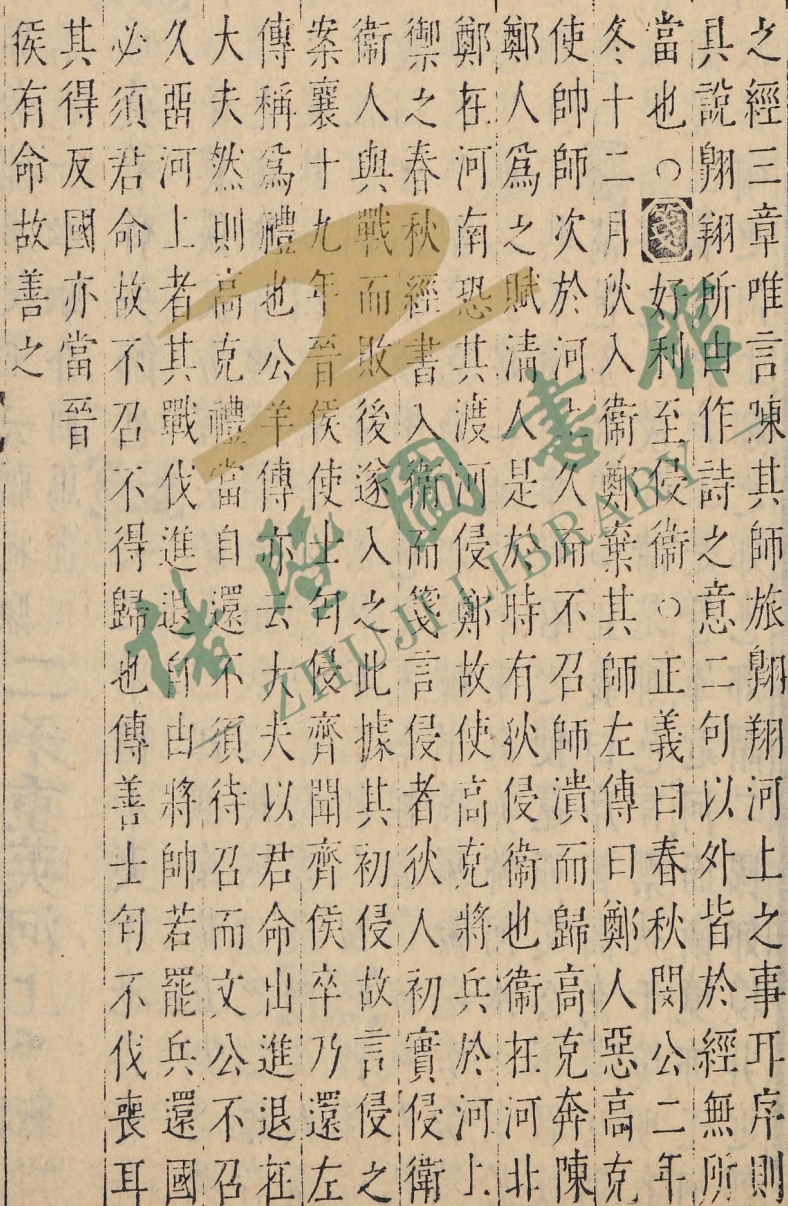 之經三章唯言陳其師旅翺翔河上之事耳序則
具說翺翔所由作詩之意二句以外皆於經無所
當也○箋好利至侵衞○正義曰春秋閔公二年
冬十二月狄入衞鄭棄其師左傳曰鄭人惡高克
使帥師次於河上久而不召師潰而歸高克奔陳
鄭人爲之賦清人是於時有狄侵衞也衞在河北
鄭在河南恐其渡河侵鄭故使高克將兵於河上
禦之春秋經書入衞而箋言侵者狄人初實侵衞
衞人與戰而敗後遂入之此據其初侵故言侵之
案襄十九年晉侯使士匄侵齊聞齊侯卒乃還左
傳稱爲禮也公羊傳亦云大夫以君命出進退在
大夫然則高克禮當自還不須待召而文公不召
久畱河上者其戰伐進退自由將帥若罷兵還國
必須君命故不召不得歸也傳善士匄不伐喪耳
其得反國亦當晉
侯有命故善之
諸暨圖書館
ZHUJI LIBRARY